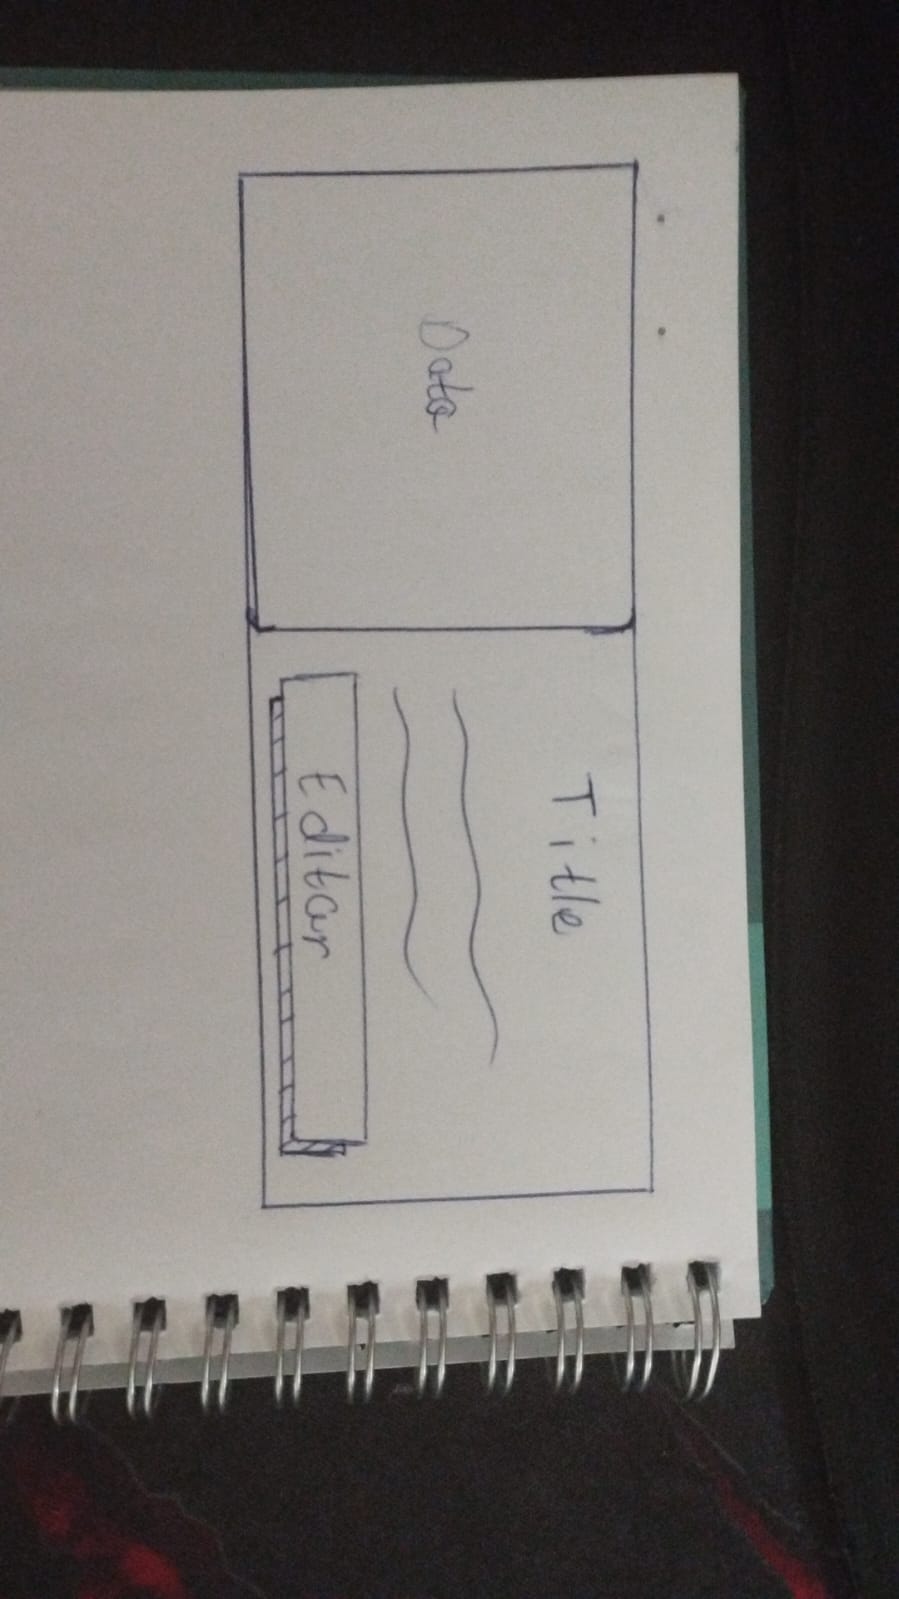 Data
Title
Editar